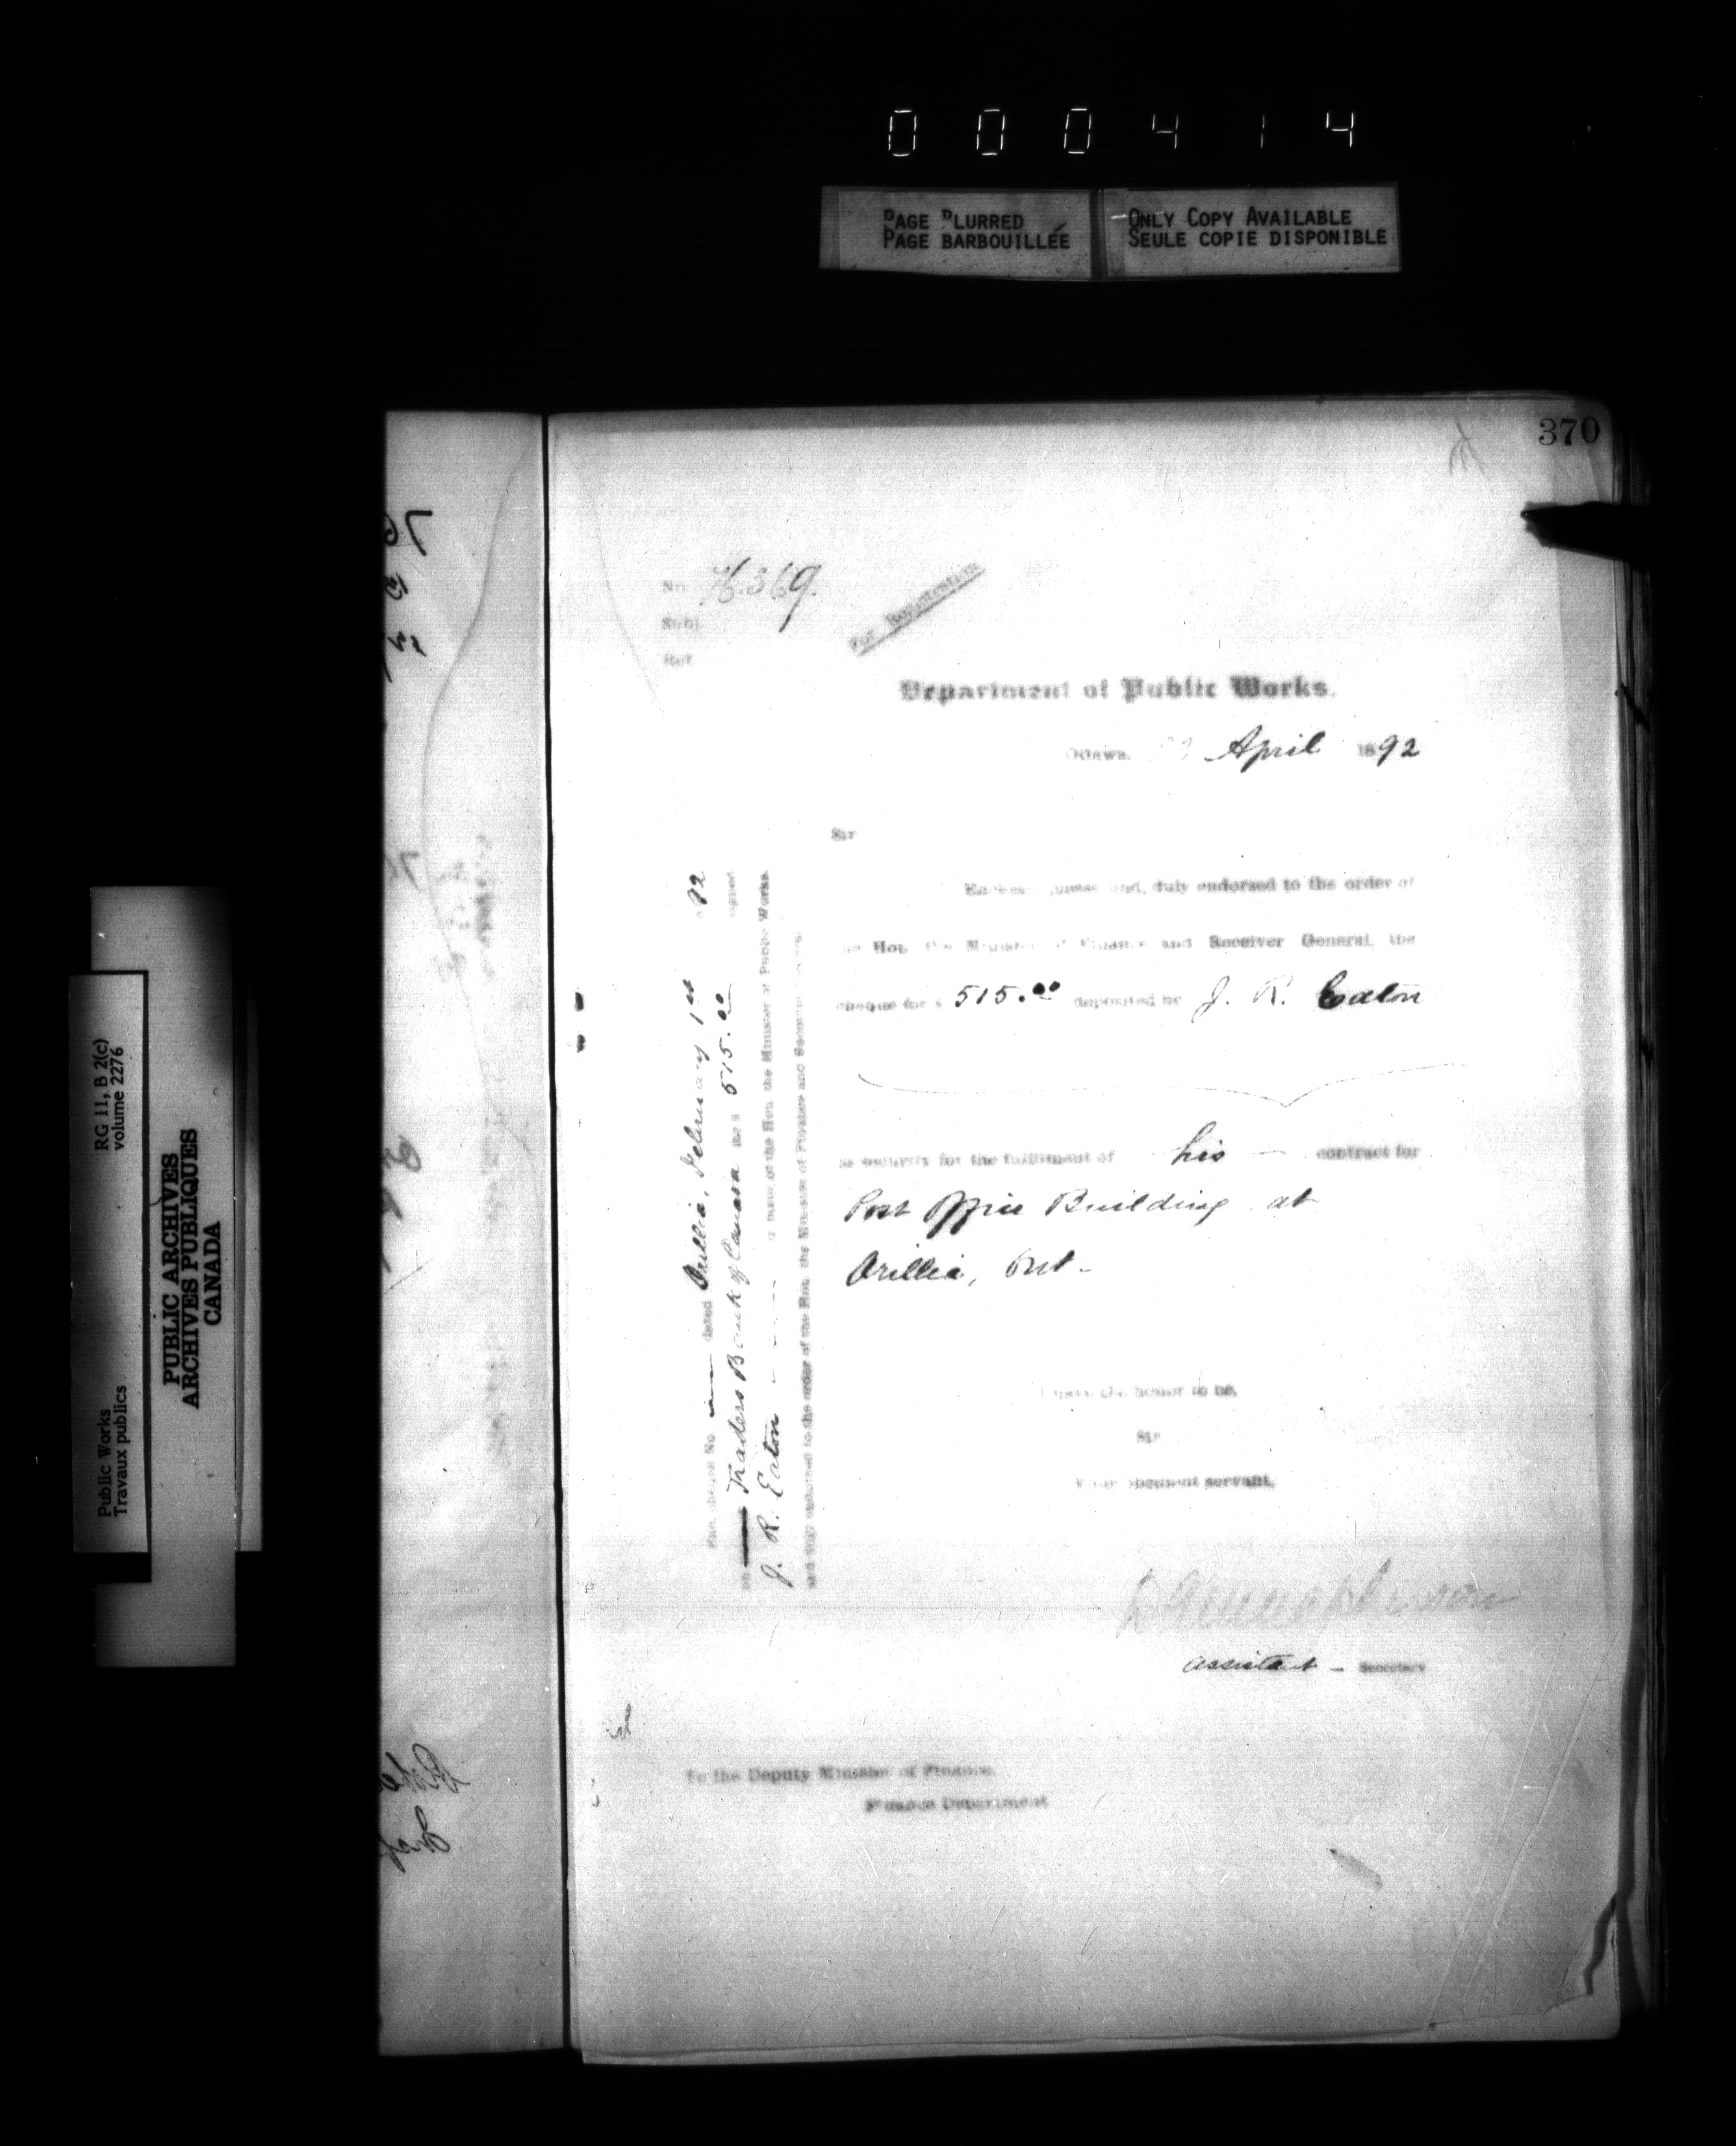 000414
PAGE BLURRED
PAGE BARBOUILLÉE
ONLY COPY AVAILABLE
SEULE COPIE DISPONIBLE
370
No. 76369.
Subj.
Ref.
For Registration
Department of Public Works.
Ottawa, April 1892
Sir
Enclosed please find, duly endorsed to the order of
the Hon. the Minister of Finance and Receiver General, the
cheque for $ 515.00 deposited by J. R. Eaton
as security for the fulfilment of his — contract for
Post Office Building at
Orillia, Ont.
I have the honor to be,
Sir
Your obedient servant,
Assistant - Secretary
To the Deputy Minister of Finance,
Finance Department
cheque No. — dated Orillia, February 1st 92
on Traders Bank of Canada for $ 515.00 signed
J. R. Eaton of the Hon. the Minister of Public Works
and duly endorsed to the order of the Hon. the Minister of Finance and Receiver
Public Works
Travaux publics
RG 11, B 2(c)
volume 2276
PUBLIC ARCHIVES
ARCHIVES PUBLIQUES
CANADA